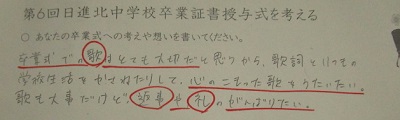 第6回日進北中学校卒業証書授与式を考える
○ あなたの卒業式への考えや想いを書いてください。
卒業式での歌はとても大切だと思うから、歌詞といつもの
学校生活をかさねたりして、心のこもった歌をうたいたい。
歌も大事だけど、返事や礼のがんばりたい。